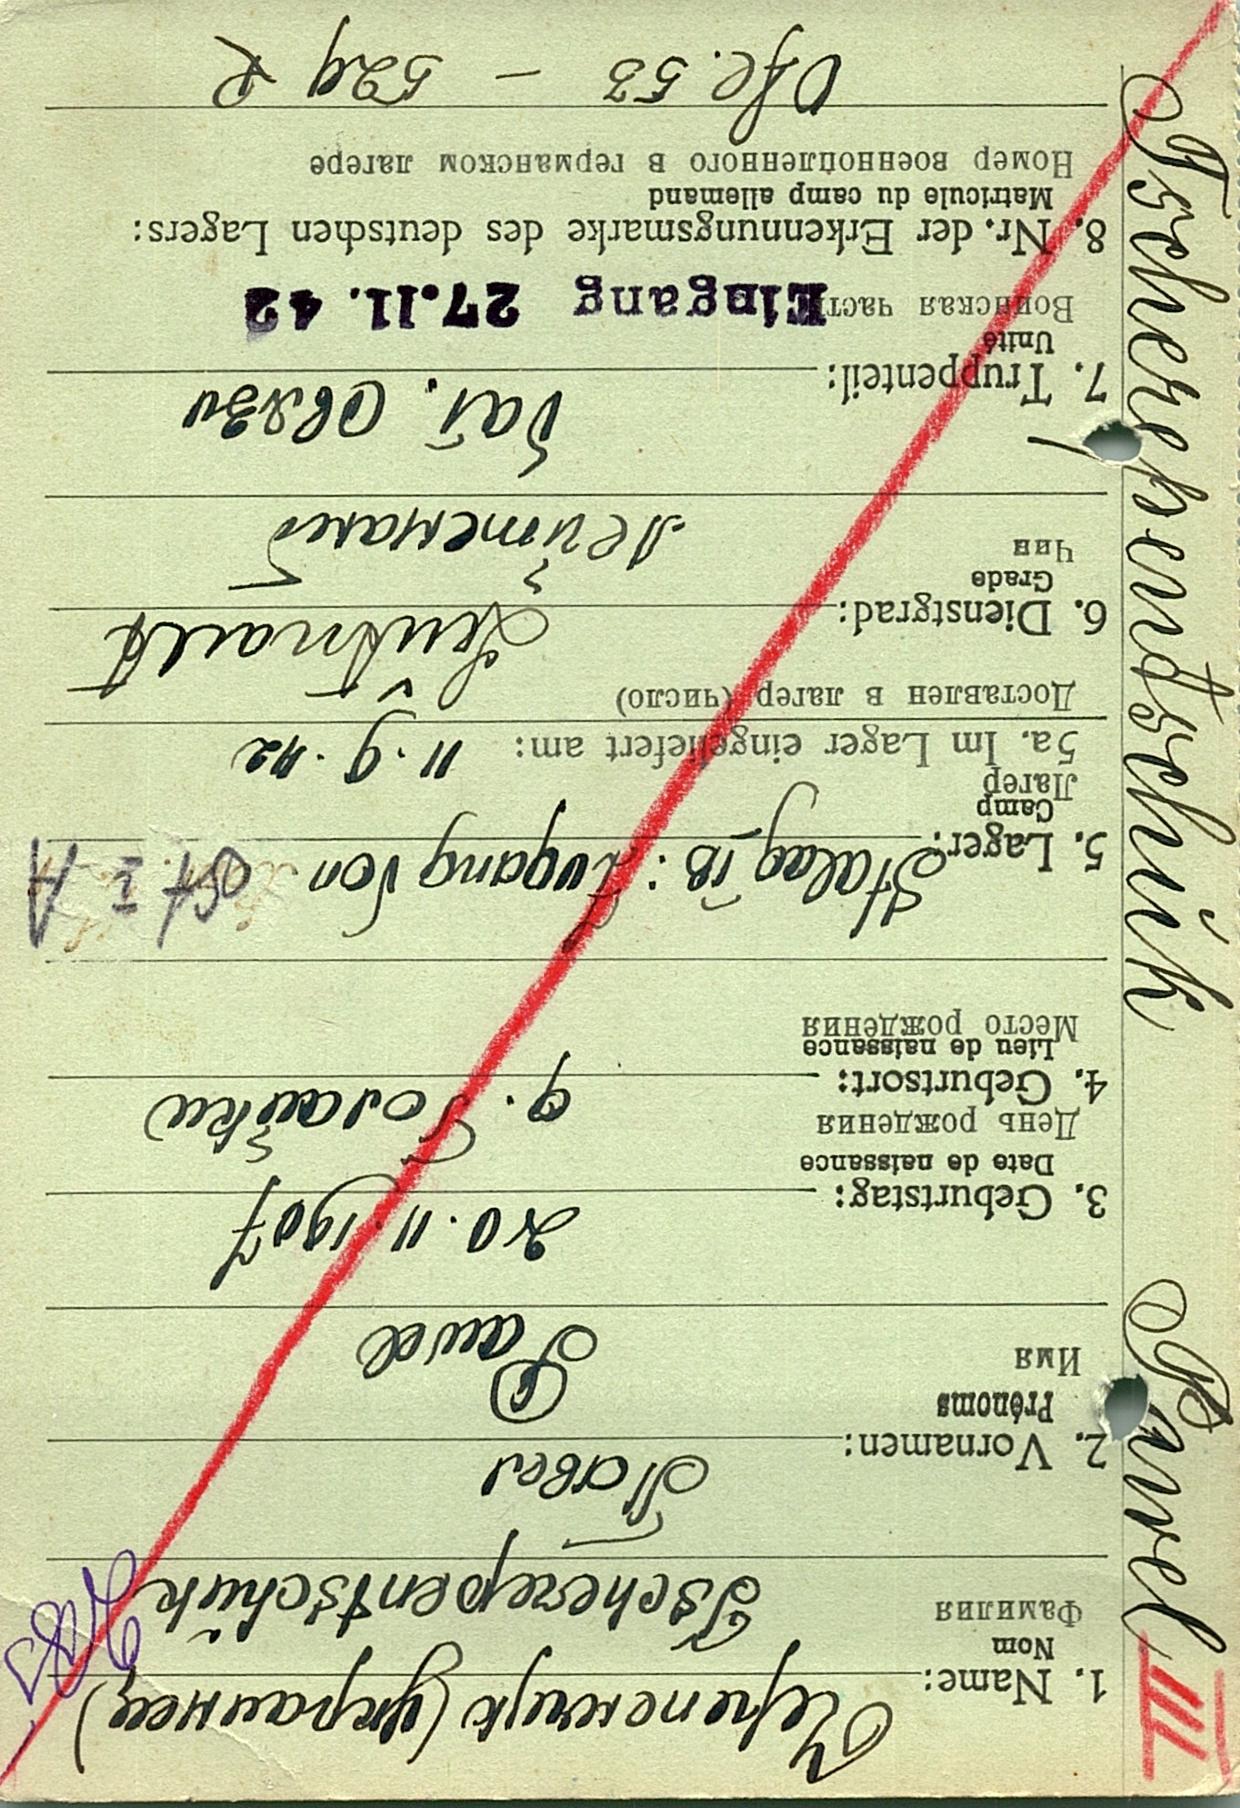 Tscherepentschuk Pawel III
1. Name: Черепенчук (украинец)
Nom
Фамилия Tscherepentschuk
2. Vornamen: Павел
Prénoms
Имя Pawel
3. Geburtstag: 20.11.1907
Date de naissance
День рождения
4. Geburtsort:
Lieu de naissance
Место рождения
5. Lager: Stalag IB: Zugang von
Camp
Лагер
5a. Im Lager eingeliefert am: 11.9.42
Доставлен в лагер (число)
6. Dienstgrad: Leutnant
Grade
Чин Лейтенант
7. Truppenteil: бат. Связи
Unité
Воинская част Eingang 27.11.42
8. Nr. der Erkennungsmarke des deutschen Lagers:
Matricule du camp allemand
Номер военнопленного в германском лагере
Ofl. 53 – 529 R